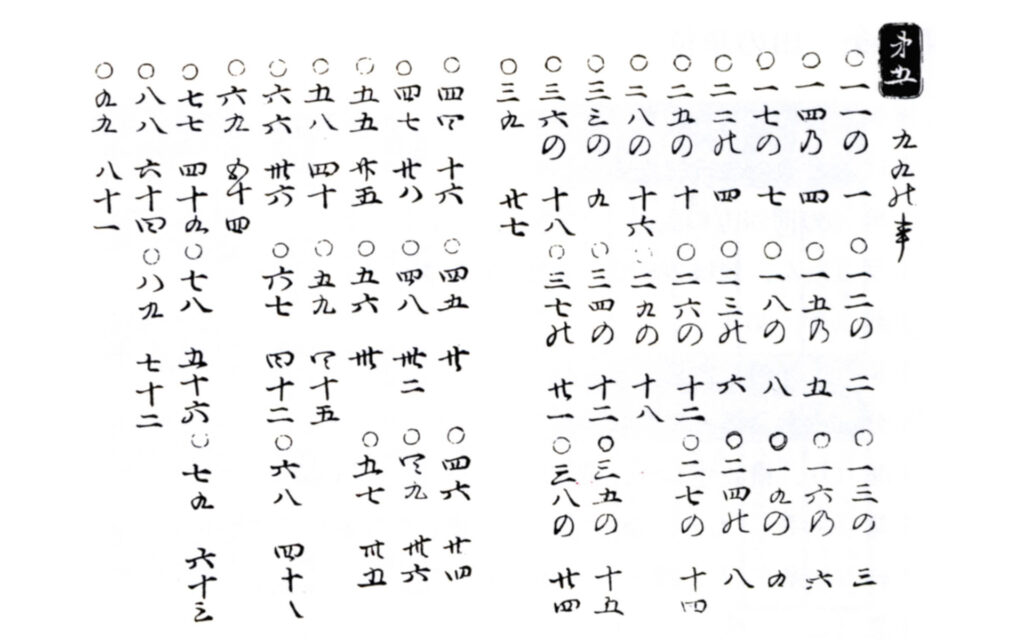 第五
九九の事
○一一の 一 ○一二の 二 ○一三の 三
○一四乃 四 ○一五乃 五 ○一六乃 六
○一七の 七 ○一八の 八 ○一九の 九
○二二の 四 ○二三の 六 ○二四の 八
○二五の 十 ○二六の 十二 ○二七の 十四
○二八の 十六 ○二九の 十八
○三三の 九 ○三四の 十二 ○三五の 十五
○三六の 十八 ○三七の 廿一 ○三八の 廿四
○三九 廿七
○四四 十六 ○四五 廿 ○四六 廿四
○四七 廿八 ○四八 卅二 ○四九 卅六
○五五 廿五 ○五六 卅 ○五七 卅五
○五八 四十 ○五九 四十五
○六六 卅六 ○六七 四十二 ○六八 四十八
○六九 五十四
○七七 四十九 ○七八 五十六 ○七九 六十三
○八八 六十四 ○八九 七十二
○九九 八十一